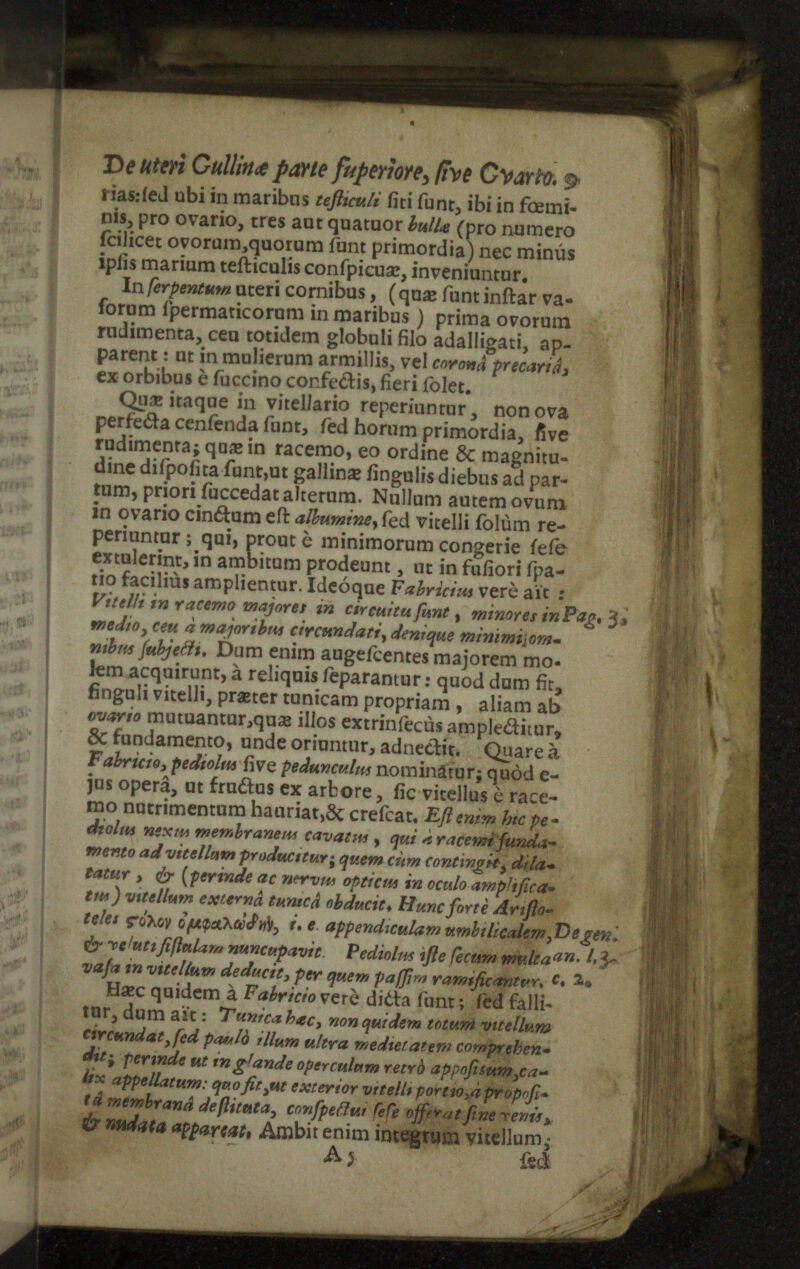 De uteri Gullinæ parte ſuperiore, ſive Ovario. 9
rias: ſed ubi in maribus teſticuli ſiti ſunt, ibi in fœmi-
nis, pro ovario, tres aut quatuor bullæ (pro numero
ſcilicet ovorum, quorum ſunt primordia) nec minús
ipſis marium teſticulis conſpicuæ, inveniuntur.
In ſerpentum uteri cornibus, (quæ ſunt inſtar va-
ſorum ſpermaticorum in maribus) prima ovorum
rudimenta, ceu totidem globuli filo adalligati, ap-
parent: ut in mulierum armillis, vel coronâ precariâ,
ex orbibus è ſuccino confectis, fieri ſolet.
Quæ itaque in vitellario reperiuntur, non ova
perfecta cenſenda ſunt, ſed horum primordia, ſive
rudimenta; quæ in racemo, eo ordine & magnitu-
dine diſpoſita ſunt, ut gallinæ ſingulis diebus ad par-
tum, priori ſuccedat alterum. Nullum autem ovum
in ovario cinctum eſt albumine, ſed vitelli ſolùm re-
periuntur; qui, prout è minimorum congerie ſeſe
extulerint, in ambitum prodeunt, ut in fuſiori ſpa-
tio faciliùs amplientur. Ideóque Fabricius verè ait:
Vitelli in racemo majores in circuitu ſunt, minores in Pag. 3.
medio, ceu à majoribus circundati, denique minimi; om-
nibus ſubjecti. Dum enim augeſcentes majorem mo-
lem acquirunt, à reliquis ſeparantur: quod dum fit,
ſinguli vitelli, præter tunicam propriam, aliam ab
ovario mutuantur, quæ illos extrinſecùs amplectitur,
& fundamento, unde oriuntur, adnectit. Quare à
Fabricio, pediolus ſive pedunculus nominatur; quòd e-
jus operâ, ut fructus ex arbore, ſic vitellus è race-
mo nutrimentum hauriat, & creſcat. Eſt enim hic pe-
diolus nexus membraneus cavatus, qui à racemi funda-
mento ad vitellum producitur; quem cùm contingit, dila-
tatur, & (perinde ac nervus opticus in oculo amplifica-
tus) vitellum externâ tunicâ obducit. Hunc fortè Ariſto-
teles ϛόλον ὀμφαλώδη, i. e. appendiculam umbilicalem, De gen.
& veluti fiſtulam nuncupavit. Pediolus iſte ſecum multa an. l. 3.
vaſa in vitellum deducit, per quem paſſim ramificantur. c. 2.
Hæc quidem à Fabricio verè dicta ſunt; ſed falli-
tur, dum ait: Tunica hæc, non quidem totum vitellum
circundat, ſed paulò illum ultra medietatem comprehen-
dit; perinde ut in glande operculum retrò appoſitum, ca-
lix appellatum: quo fit, ut exterior vitelli portio, à propoſi-
tâ membranâ deſtituta, conſpectui ſeſe offerat ſine venis,
& nudata appareat. Ambit enim integrum vitellum;
A 5 ſed